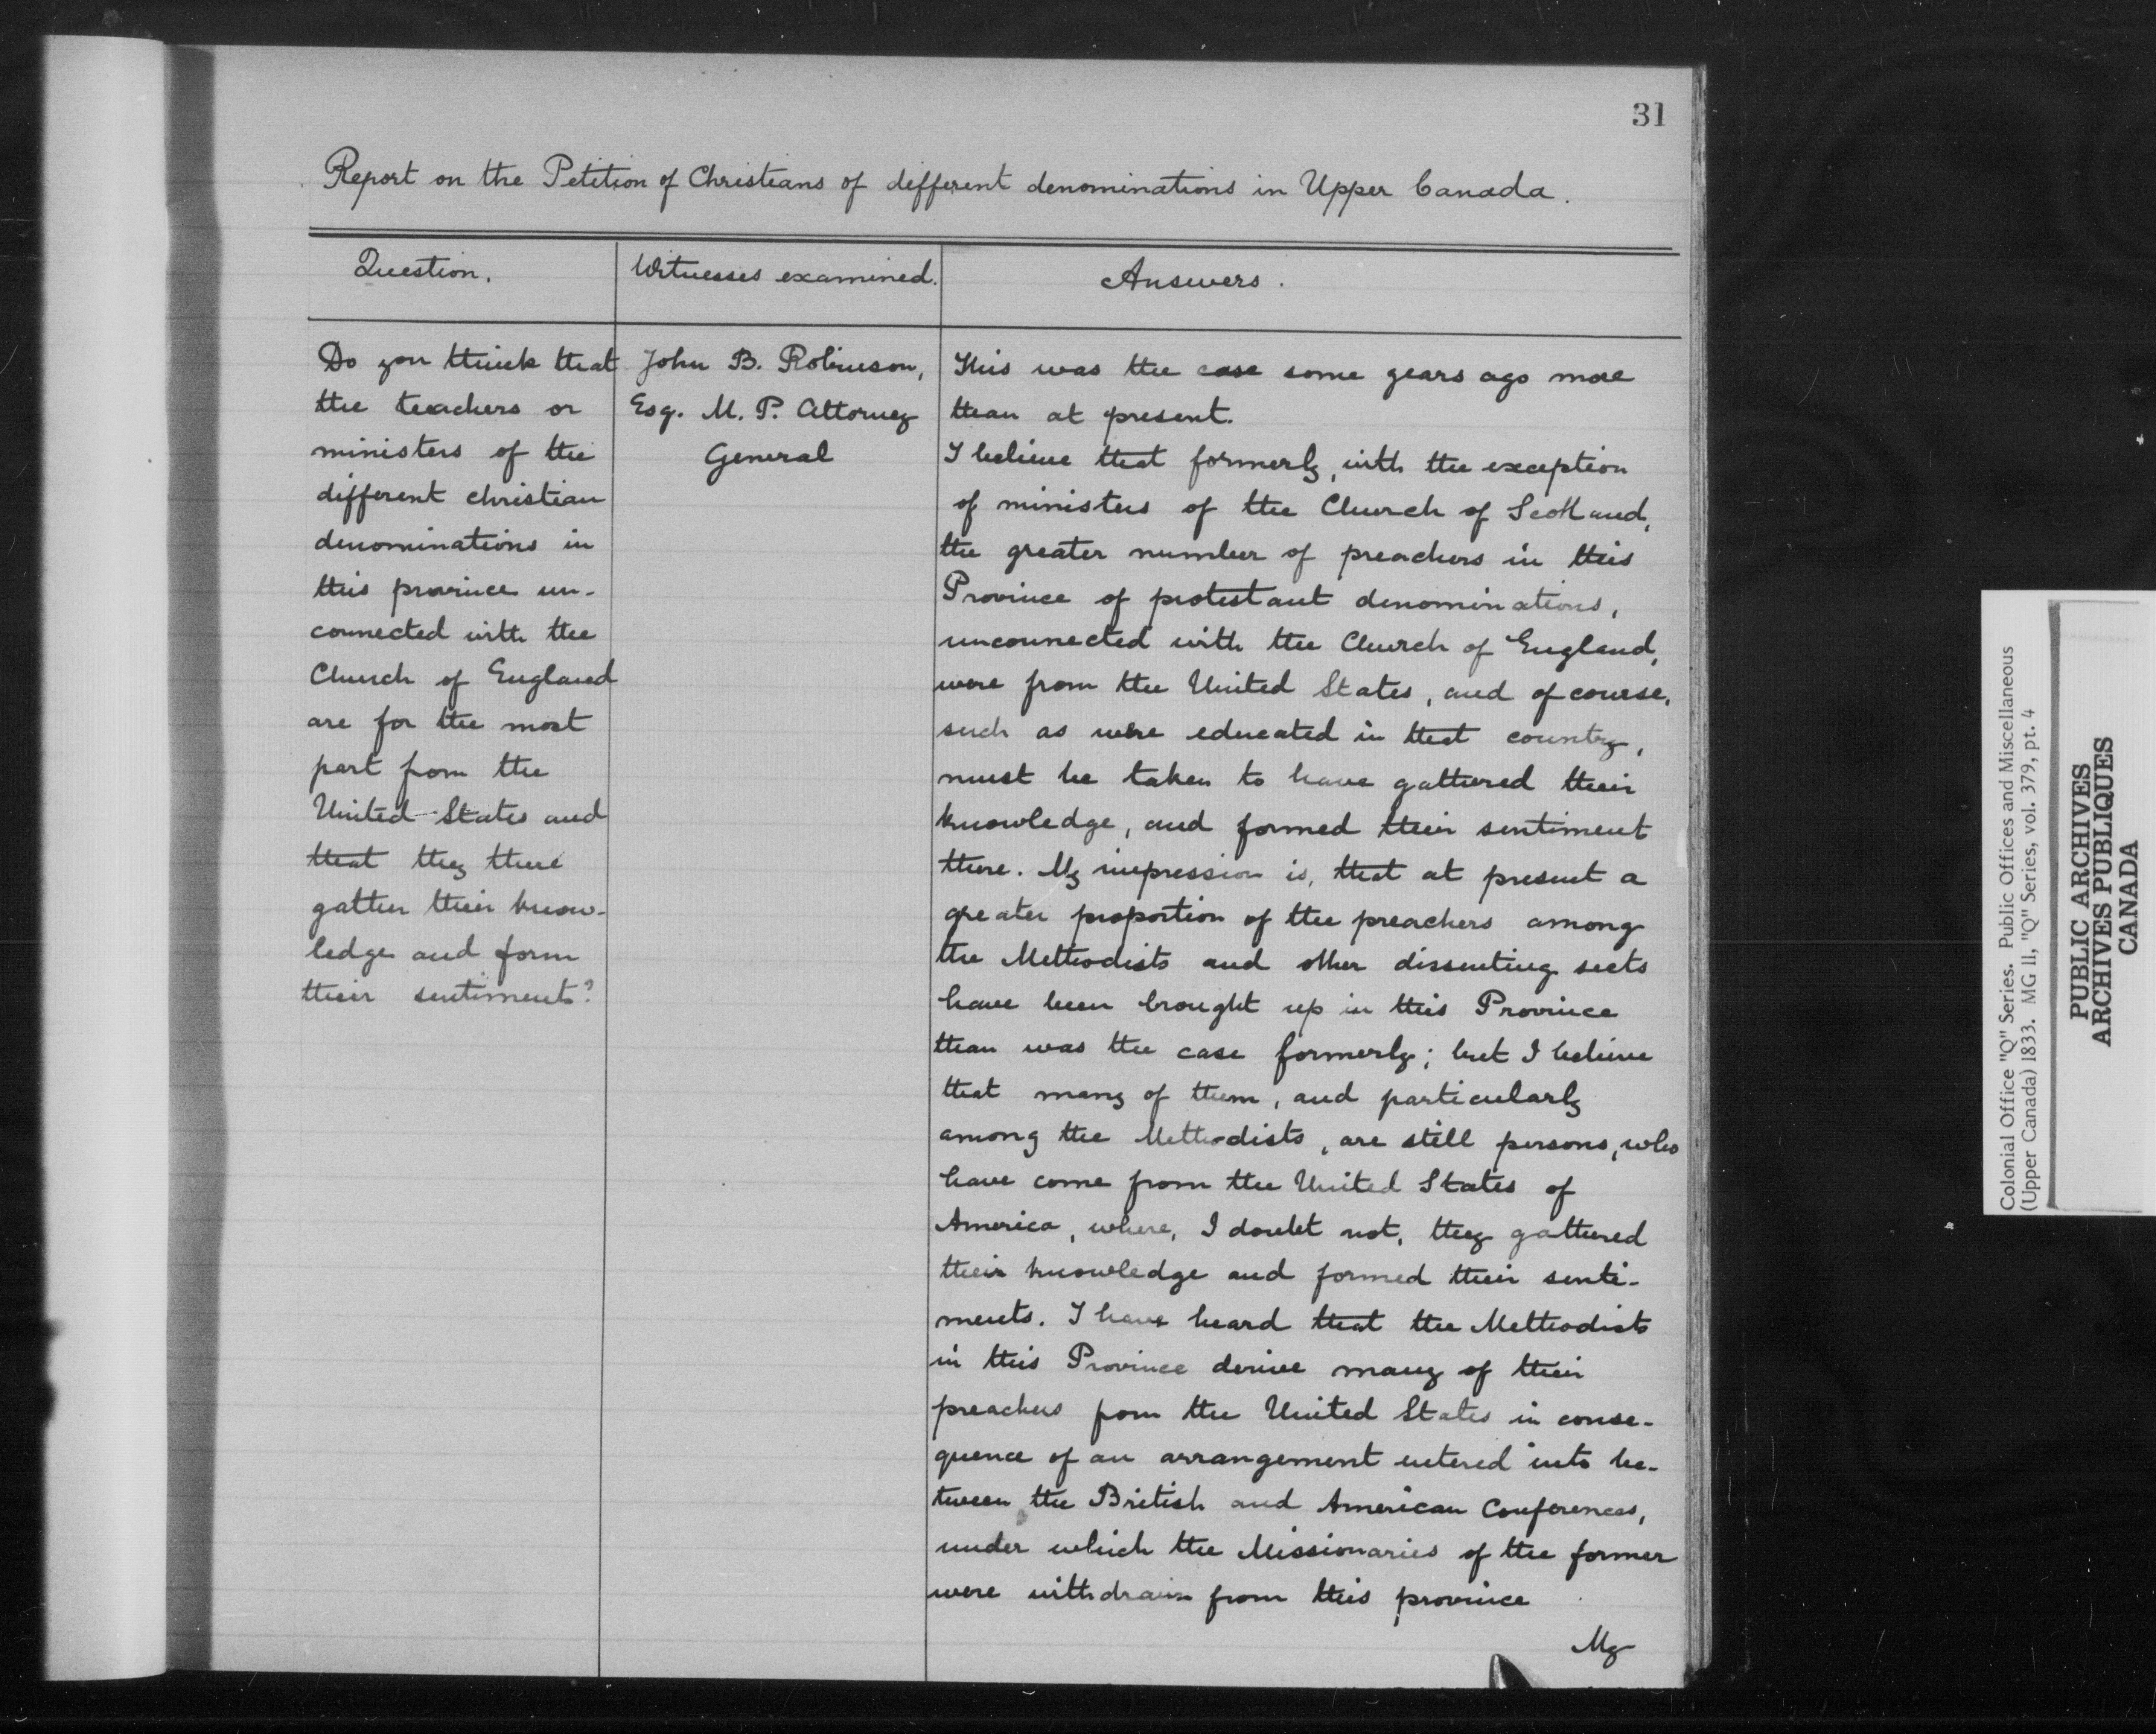 31
Report on the Petition of Christians of different denominations in Upper Canada.
Question.
Witnesses examined.
Answers.
Do you think that
the teachers or
ministers of the
different christian
denominations in
this province un-
connected with the
Church of England
are for the most
part from the
United States and
that they there
gather their know-
ledge and form
their sentiments?
John B. Robinson,
Esq. M. P. Attorney
General
This was the case some years ago more
than at present.
I believe that formerly, with the exception
of ministers of the Church of Scotland,
the greater number of preachers in this
Province of protestant denominations,
unconnected with the Church of England,
were from the United States, and of course,
such as were educated in that country,
must be taken to have gathered their
knowledge, and formed their sentiment
there. My impression is, that at present a
greater proportion of the preachers among
the Methodists and other dissenting sects
have been brought up in this Province
than was the case formerly; but I believe
that many of them, and particularly
among the Methodists, are still persons, who
have come from the United States of
America, where, I doubt not, they gathered
their knowledge and formed their senti-
ments. I have heard that the Methodists
in this Province derive many of their
preachers from the United States in conse-
quence of an arrangement entered into be-
tween the British and American Conferences,
under which the Missionaries of the former
were withdrawn from this province
My
Colonial Office "Q" Series. Public Offices and Miscellaneous
(Upper Canada) 1833. MG 11, "Q" Series, vol. 379, pt. 4
PUBLIC ARCHIVES
ARCHIVES PUBLIQUES
CANADA